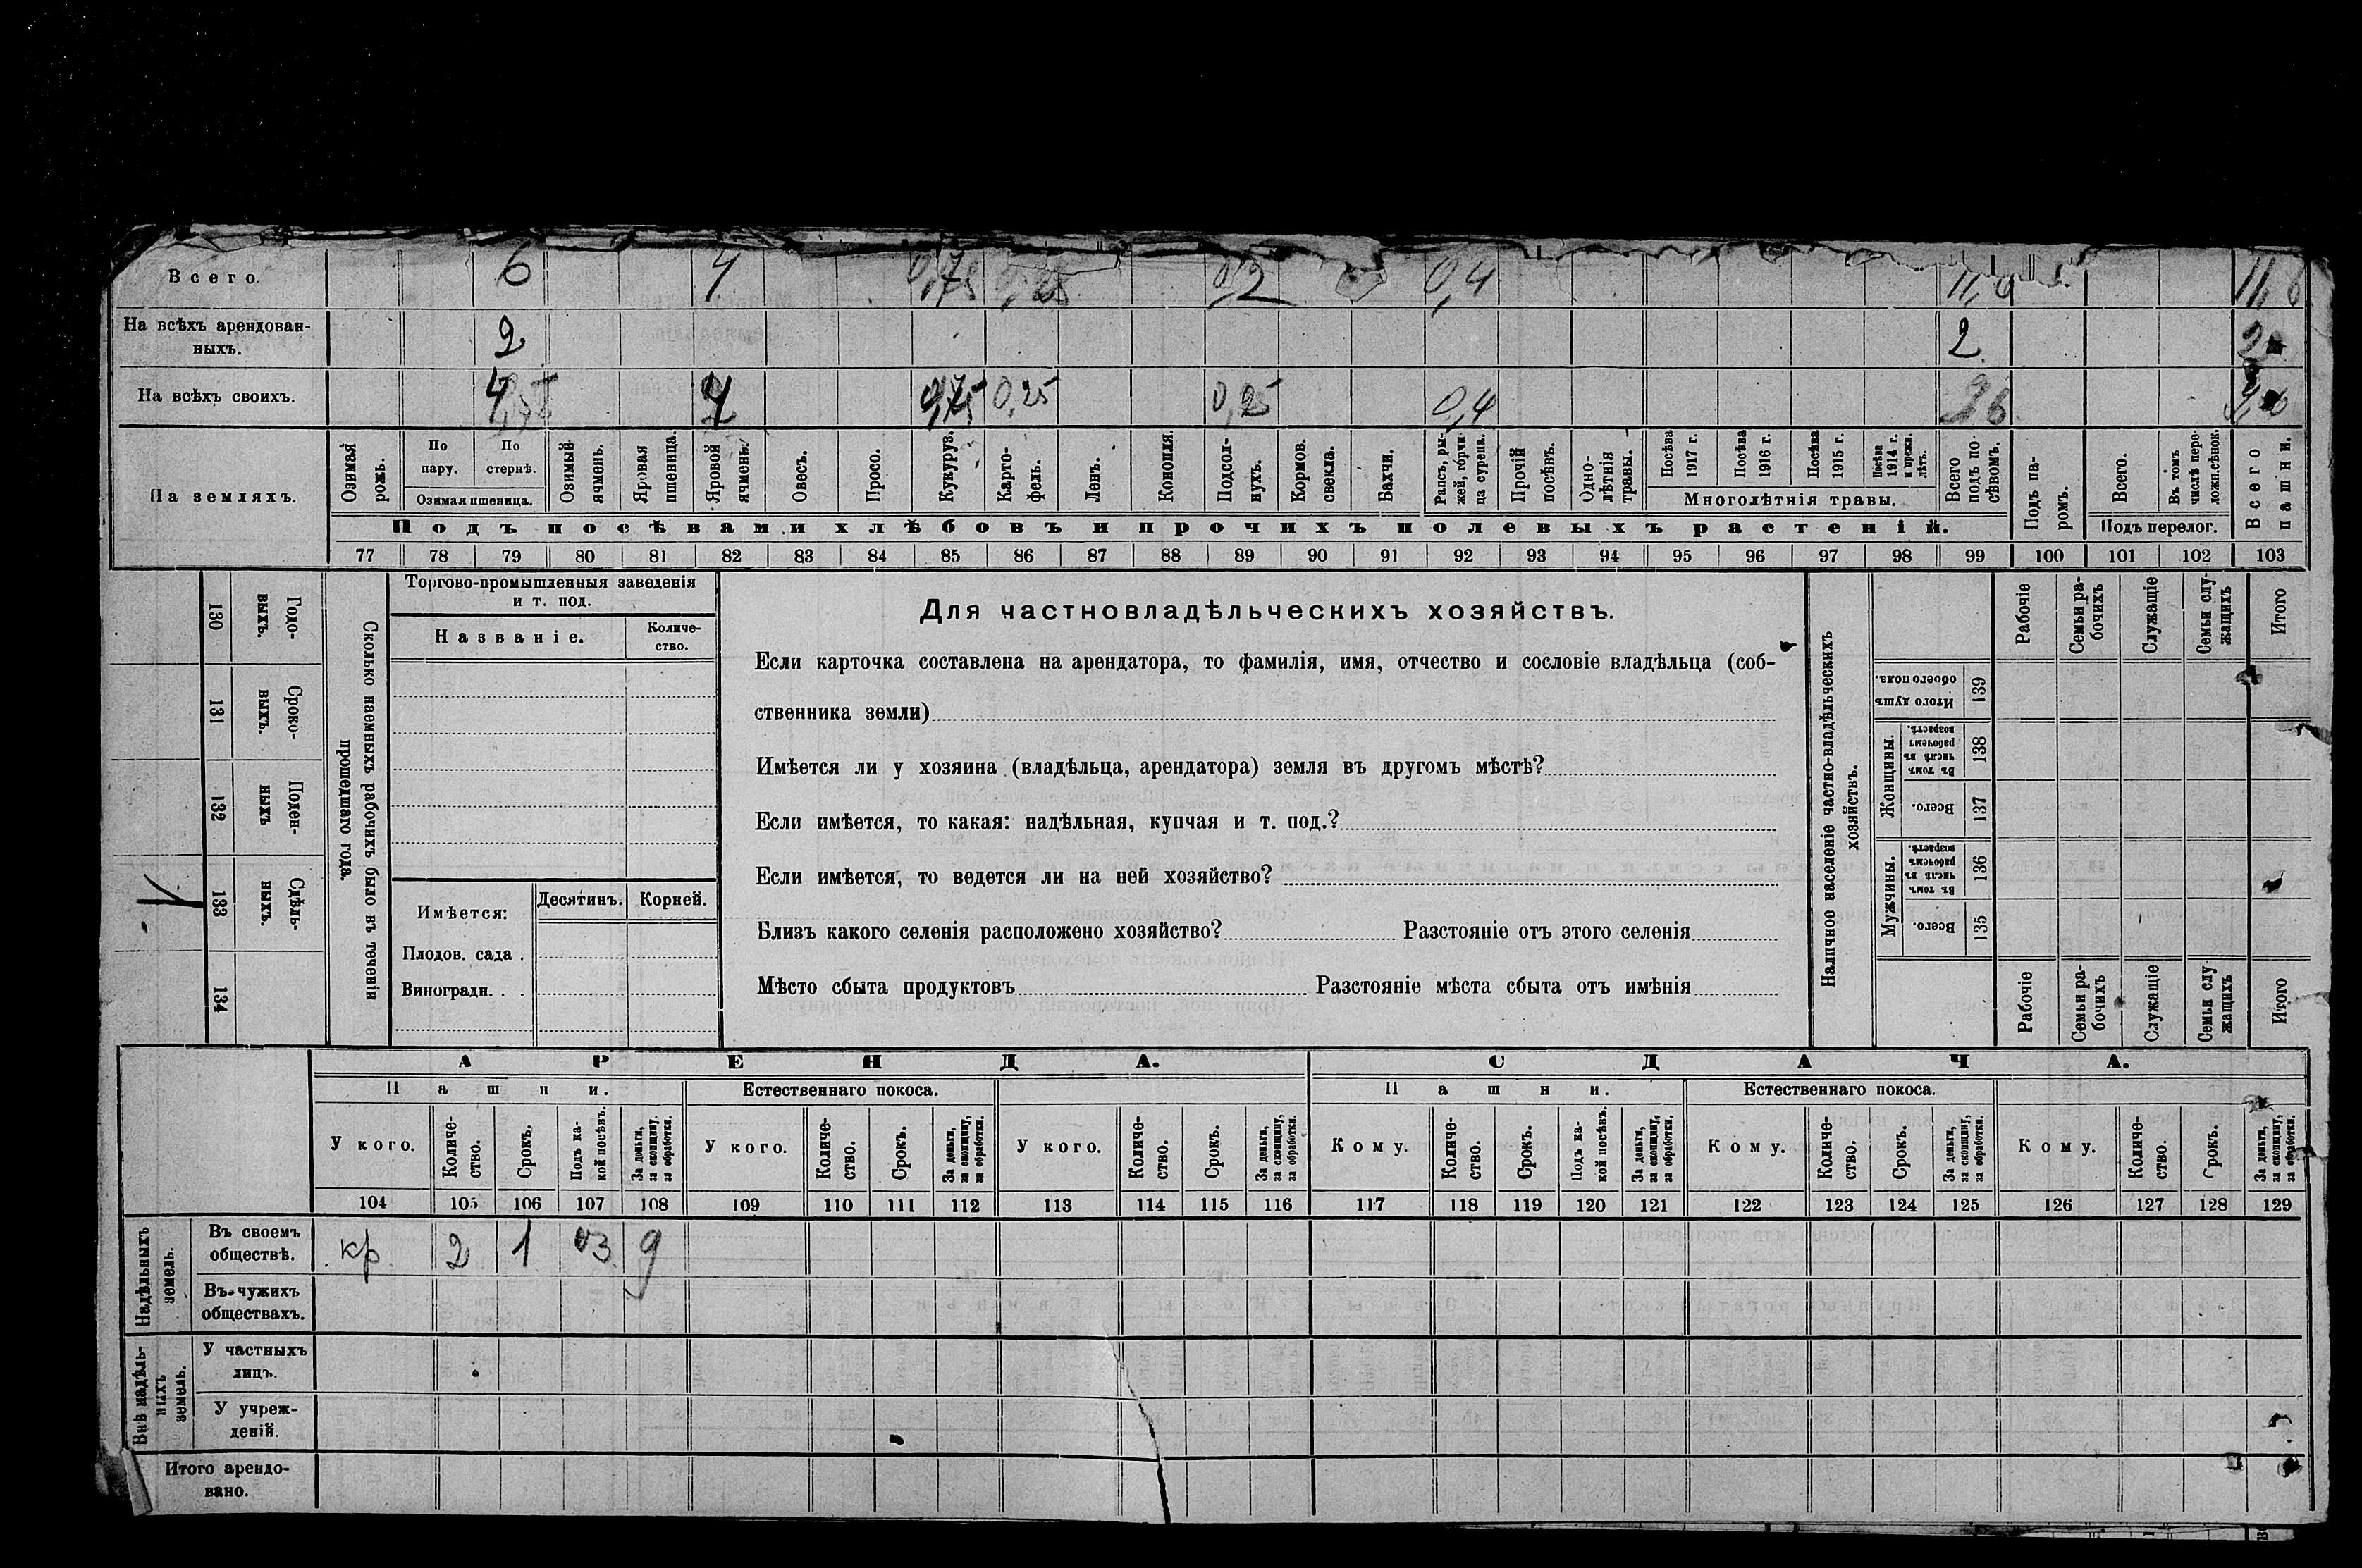 Всего. 6 4 0,75 0,25 0,2 0,4 11,6 11,6
На всѣхъ арендован-
ныхъ. 2 2 2
На всѣхъ своихъ. 4 4 0,75 0,25 0,25 0,4 9,6
На земляхъ.
Озимая
рожь.
По
пару.
По
стернѣ.
Озимая пшеница.
Озимый
ячмень.
Яровая
пшеница.
Яровой
ячмень.
Овесъ.
Просо.
Кукуруз.
Карто-
фель.
Ленъ.
Конопля.
Подсол-
нухъ.
Кормов.
свекла.
Бахчи.
Рапсъ, ры-
жей, горчи
ца сурепа.
Прочій
посѣвъ.
Одно-
лѣтнія
травы.
Посѣва
1917 г.
Посѣва
1916 г.
Посѣва
1915 г.
Посѣва
1914 г.
и прежн.
лѣтъ.
Многолѣтнія травы.
Всего
подъ по-
сѣвомъ.
Подъ па-
ромъ.
Всего.
Въ томъ
числѣ пере-
ложн.сѣнок.
Подъ перелог.
Всего
пашни.
Подъ посѣвами хлѣбовъ и прочихъ полевыхъ растеній.
77 78 79 80 81 82 83 84 85 86 87 88 89 90 91 92 93 94 95 96 97 98 99 100 101 102 103
130 Годо-
выхъ.
131 Сроко-
выхъ.
132 Поден-
ныхъ
133 Сдѣль-
ныхъ.
134
Сколько наемныхъ рабочихъ было въ теченіи
прошедшаго года.
Торгово-промышленныя заведенія
и т. под.
Названіе.
Количе-
ство.
Имѣется:
Десятинъ. Корней.
Плодов. сада .
Виноградн. . .
Для частновладѣльческихъ хозяйствъ.
Если карточка составлена на арендатора, то фамилія, имя, отчество и сословіе владѣльца (соб-
ственника земли)
Имѣется ли у хозяина (владѣльца, арендатора) земля въ другомъ мѣстѣ?
Если имѣется, то какая: надѣльная, купчая и т. под.?
Если имѣется, то ведется ли на ней хозяйство?
Близъ какого селенія расположено хозяйство? Разстояніе отъ этого селенія
Мѣсто сбыта продуктовъ Разстояніе мѣста сбыта отъ имѣнія
Наличное населеніе частно-владѣльческихъ
хозяйствъ.
Рабочіе
Семьи ра-
бочихъ
Служащіе
Семьи слу-
жащихъ
Итого
Итого душъ
обоего пола.
139
Женщины.
Въ томъ
числѣ въ
рабочемъ
возрастѣ.
138
Всего.
137
Мужчины.
Въ томъ
числѣ въ
рабочемъ
возрастѣ.
136
Всего.
135
Рабочіе
Семьи ра-
бочихъ
Служащіе
Семьи слу
жащихъ
Итого
АРЕНДА. СДАЧА.
Пашни. Естественнаго покоса. Пашни. Естественнаго покоса.
У кого.
Количе-
ство.
Срокъ.
Подъ ка-
кой посѣвъ.
За деньги,
за скопщину,
за обработки.
У кого.
Количе-
ство.
Срокъ.
За деньги,
за скопщину,
за обработки.
У кого.
Количе-
ство.
Срокъ.
За деньги,
за скопщину,
за обработки.
Кому.
Количе-
ство.
Срокъ.
Подъ ка-
кой посѣвъ.
За деньги,
за скопщину,
за обработки.
Кому.
Количе-
ство.
Срокъ.
За деньги,
за скопщину,
за обработки.
Кому.
Количе-
ство.
Срокъ.
За деньги,
за скопщину,
за обработки.
104 105 106 107 108 109 110 111 112 113 114 115 116 117 118 119 120 121 122 123 124 125 126 127 128 129
Надѣльныхъ
земель.
Въ своемъ
обществѣ. кр. 2 1 оз д
Въ чужихъ
обществахъ.
Внѣ надѣль-
ныхъ
земель.
У частныхъ
лицъ.
У учреж-
деній.
Итого арендо-
вано.